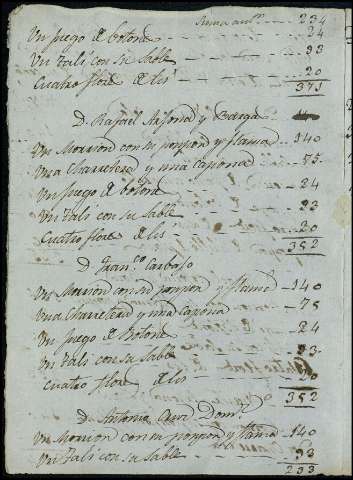 Suma antr. . . . 234
Un Juego de botone . . . 24
Un Tali con su Sable . . . 93
Cuatro flore de lis . . . 20
371
D. Rafael Arjona y Barga
Un Morrion con su ponpon y flama . . 140
Una Charretera y una capona . . . 75
Un Juego de botone . . . 24
Un Tali con su Sable . . . 93
Cuatro flore de lis . . . 20
352
D. Fran.co Carbajo
Un Morrion con su ponpon y flama . . 140
Una Charretera y una capona . . . 75
Un Juego de Botone . . . 24
Un Tali con su Sable . . . 93
Cuatro flore de lis . . . 20
352
D. Antonio
Un Morrion con su ponpon y flama . . 140
Un Tali con su Sable . . . 93
233